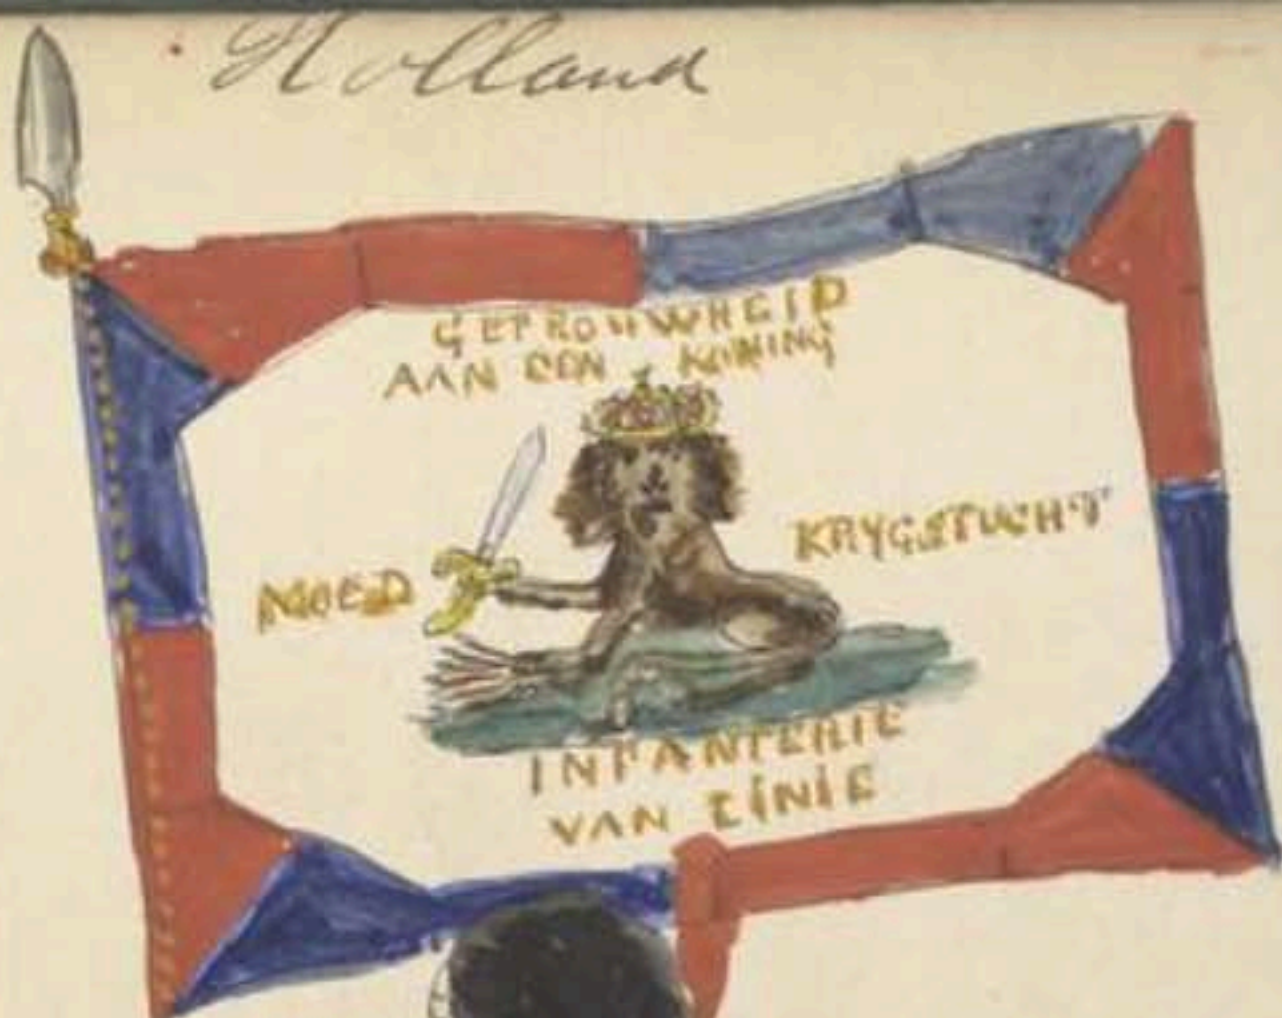 Holland
GETROUWHEID
AAN DEN KONING
MOED
KRYGSTUCHT
INFANTERIE
VAN LINIE